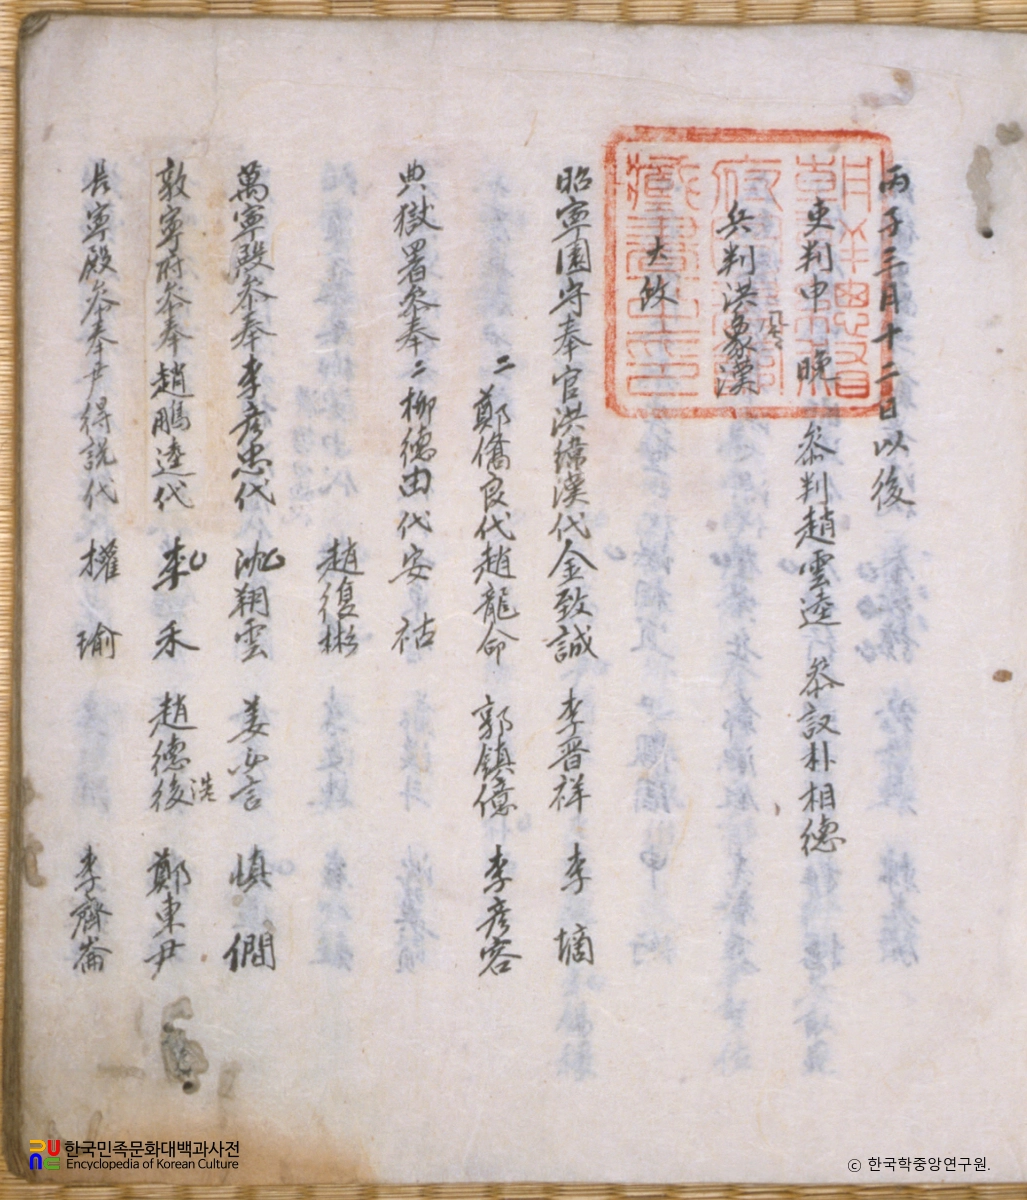 丙子三月十二日以後
吏判申晩 叅判趙雲逵 叅議朴相德
兵判洪象漢
大政
昭寧園守奉官洪緯漢代金致誠 李晋祥 李 墑
二 鄭僑良代趙龍命 郭鎮億 李彦容
典獄署叅奉二柳德由代安 祜
趙復彬
萬寧殿叅奉李彦忠代 沈翔雲 姜 言 愼 僩
敦寧府叅奉趙鵬逵代 李 禾 趙德後 浩 鄭東尹
長寧殿叅奉尹得説代 權 瑜 李齊崙
한국민족문화대백과사전
Encyclopedia of Korean Culture
© 한국학중앙연구원.